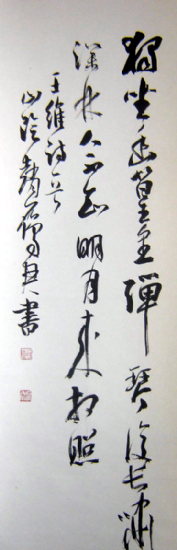 獨坐幽篁里彈琴復長嘯
深林人不知明月来相照
王維詩一首
書